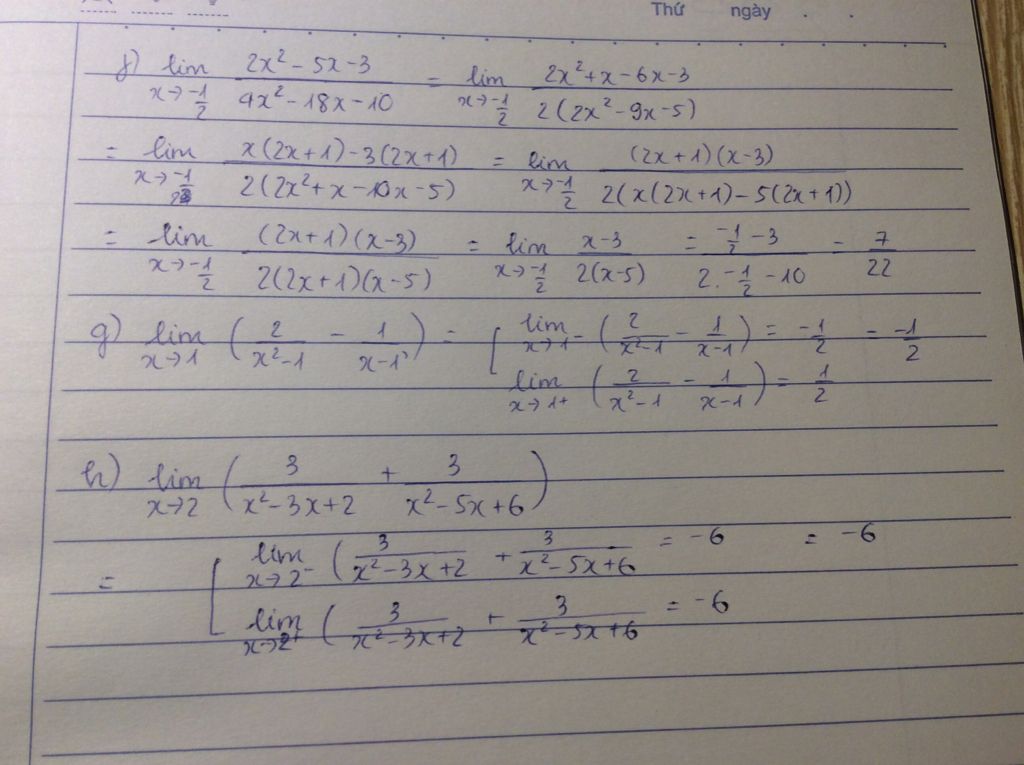 Thứ ngày . .
f) lim x→-1/2 (2x² - 5x - 3)/(4x² - 18x - 10) = lim x→-1/2 (2x² + x - 6x - 3)/(2(2x² - 9x - 5))
= lim x→-1/2 (x(2x+1) - 3(2x+1))/(2(2x² + x - 10x - 5)) = lim x→-1/2 ((2x+1)(x-3))/(2(x(2x+1) - 5(2x+1)))
= lim x→-1/2 ((2x+1)(x-3))/(2(2x+1)(x-5)) = lim x→-1/2 (x-3)/(2(x-5)) = (-1/2 - 3)/(2.-1/2 - 10) = 7/22
g) lim x→1 (2/(x²-1) - 1/(x-1)) = [ lim x→1- (2/(x²-1) - 1/(x-1)) = -1/2 = -1/2
lim x→1+ (2/(x²-1) - 1/(x-1)) = 1/2
h) lim x→2 (3/(x²-3x+2) + 3/(x²-5x+6))
= [ lim x→2⁻ (3/(x²-3x+2) + 3/(x²-5x+6) = -6 = -6
lim x→2⁺ (3/(x²-3x+2) + 3/(x²-5x+6) = -6